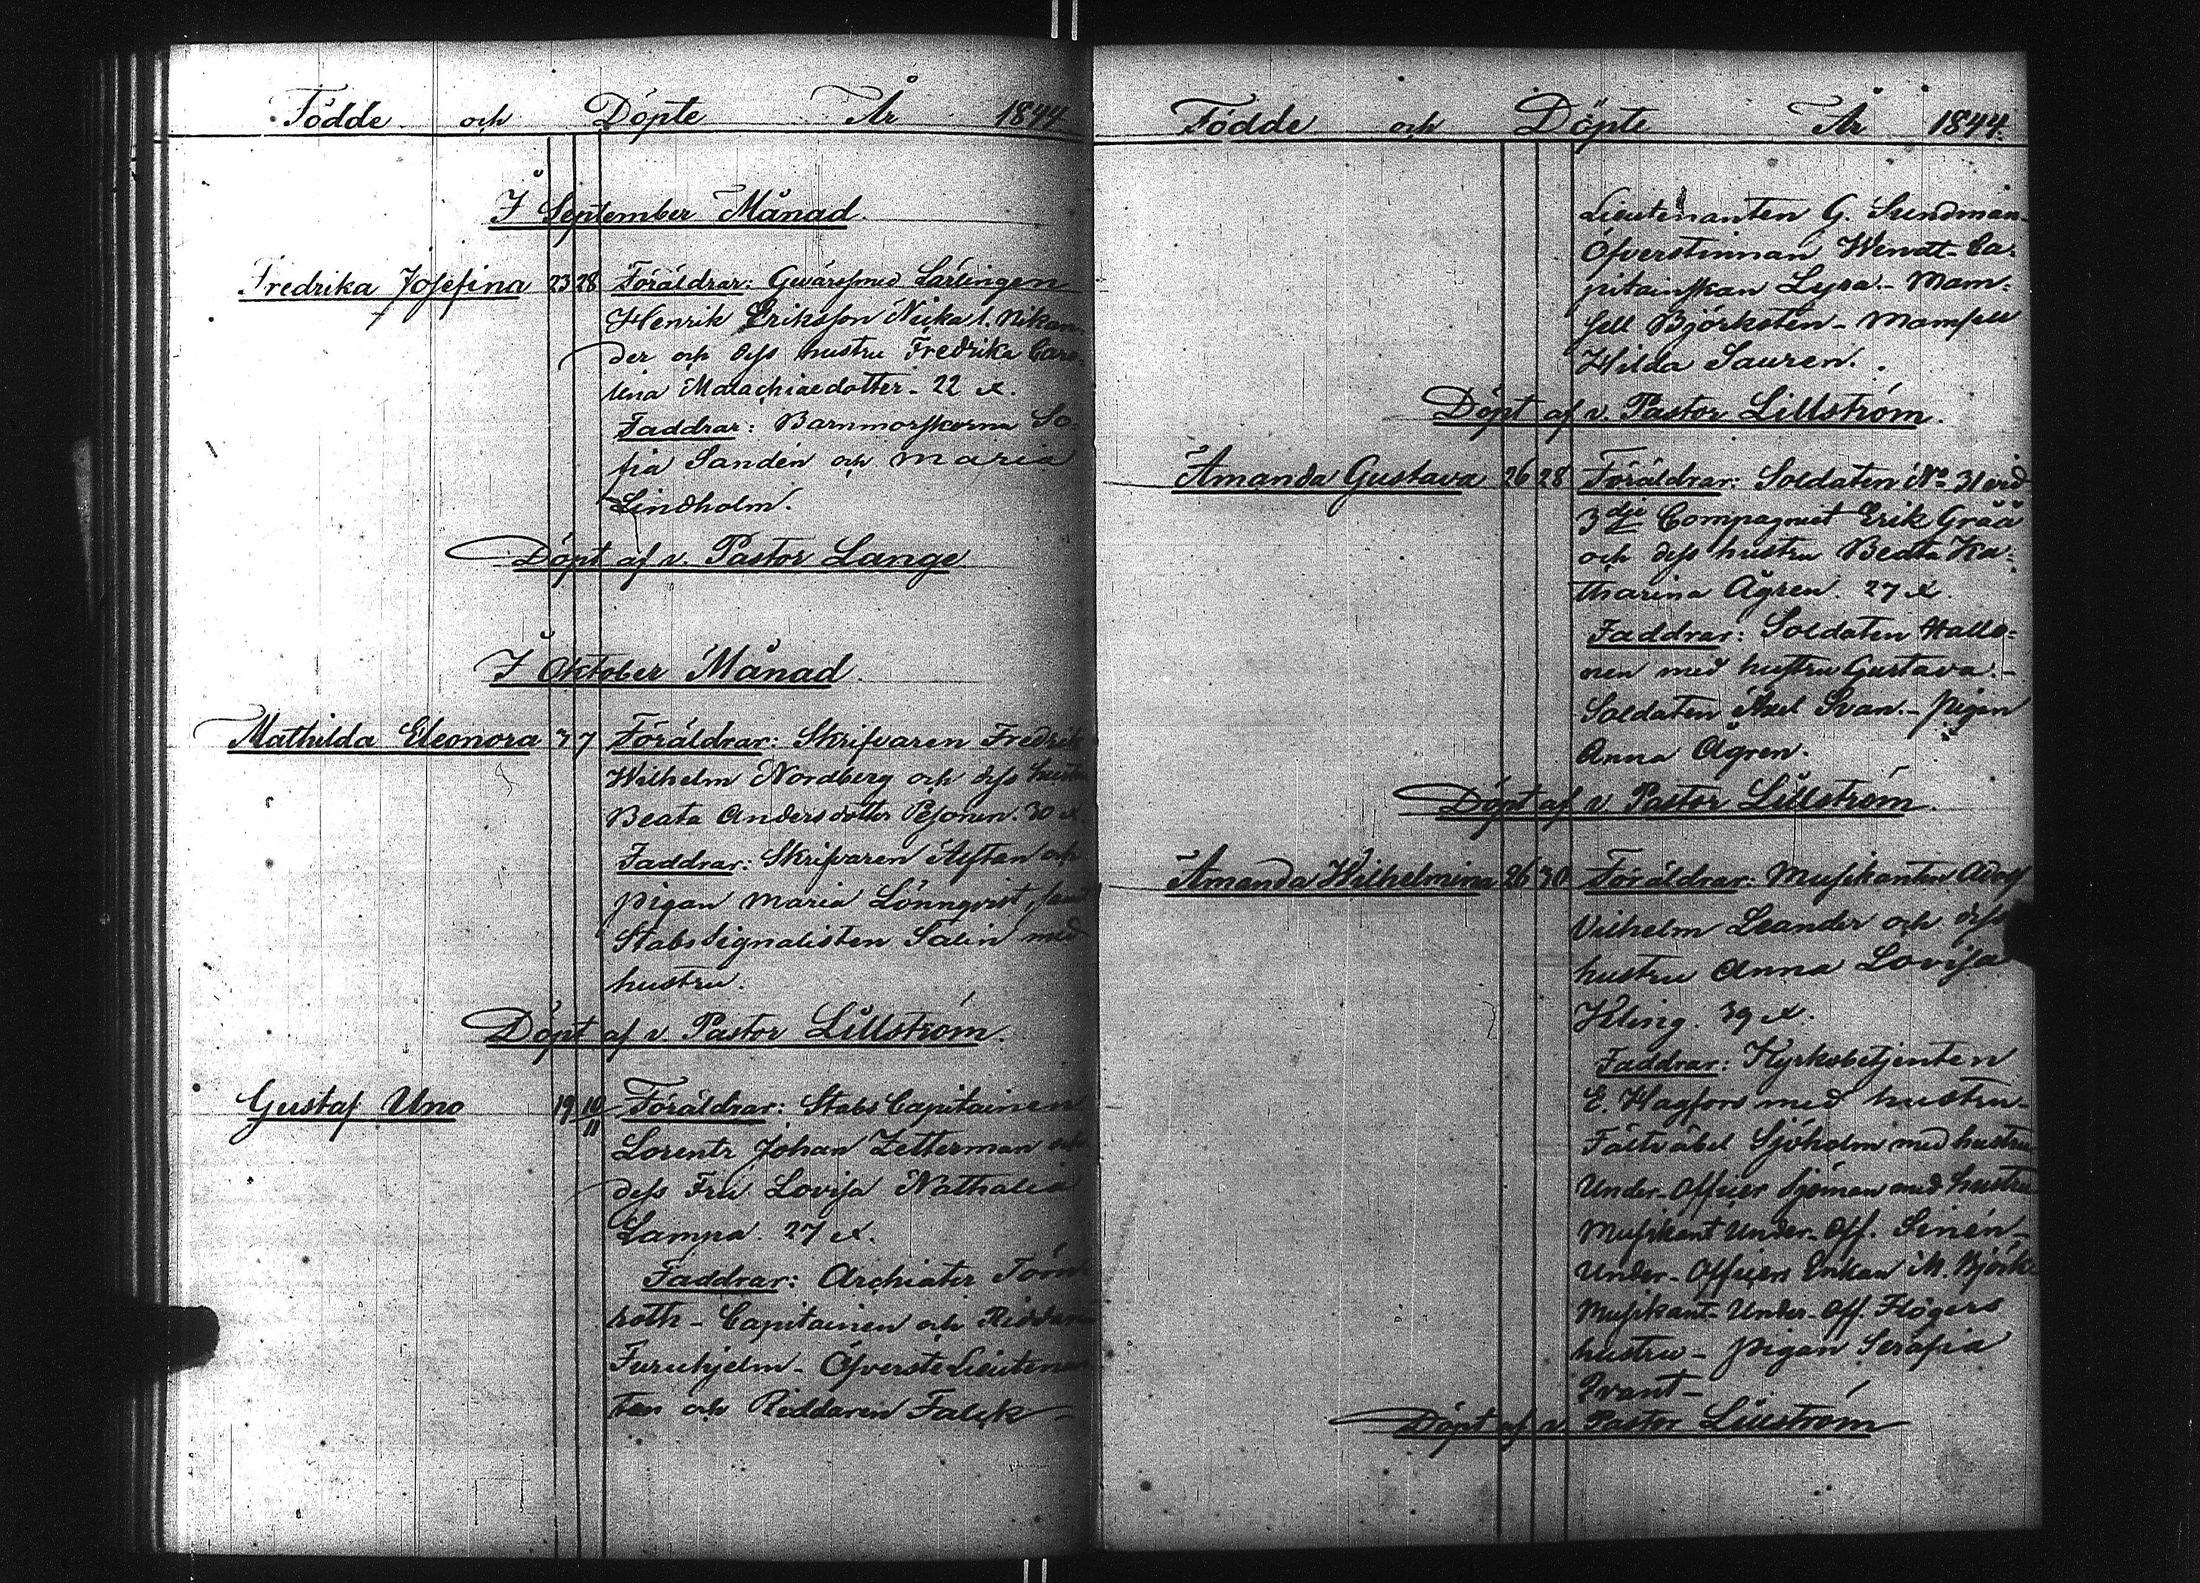 Födde och Döpte År 1844
I September Månad.
Fredrika Josefina 23 28 Föräldrar: Gevärssmeds Lärlingen
Henrik Eriksson Nikan-
der och dess hustru Fredrika Caro-
lina Malachiaedotter. 22 x.
Faddrar: Barnmorskorna So-
fia Sandén och Maria
Lindholm.
Döpt af v. Pastor Lange
I Oktober Månad.
Mathilda Eleonora 3 7 Föräldrar: Skrifvaren Fredrik
Wilhelm Nordberg och dess hustru
Beata Andersdotter Pesonen. 30 x.
Faddrar: Skrifvaren och
pigan Maria Lönnqvist, samt
Stabssignalisten Salin med
hustru.
Döpt af v. Pastor Lillström.
Gustaf Uno 19 10/11 Föräldrar: StabsCapitainen
Lorentz Johan Zetterman och
dess Fru Lovisa Nathalia
Lampa. 27 x.
Faddrar: Archiater Törn-
roth – Capitainen och Riddaren
Furuhjelm – ÖfversteLieutenan
ten och Riddaren Falck –
Födde och Döpte År 1844.
Lieutenanten G. Sundman –
Öfverstinnan Wendt – Ca-
pitainskan Lyra. – Mam-
sell Björkstén – Mamsell
Hilda Sauren.
Döpt af v. Pastor Lillström.
Amanda Gustava 26 28 Föräldrar: Soldaten No 31 vid
3dje Compagniet Erik Gråå
och dess hustru Beata Ka-
tharina Ågren. 27 x.
Faddrar: Soldaten Hallo-
nen med hustru Gustava. –
Soldaten Axel Svan. – Pigan
Anna Ågren.
Döpt af v. Pastor Lillström.
Amanda Wilhelmina 26 30 Föräldrar: Musikanten Adolf
Vilhelm Leander och dess
hustru Anna Lovisa
39 x.
Faddrar: Kyrkobetjenten
E. Hagfors med hustru –
Fältväbel Sjöholm med hustru
Under-Officer Sjöman med hustru
Musikant Under-Off. Sinén –
Under-Officers Enkan M. Björk
Musikant-Under-Off. Högers
hustru – Pigan Serafia
Qvant –
Döpt af v. Pastor Lillström